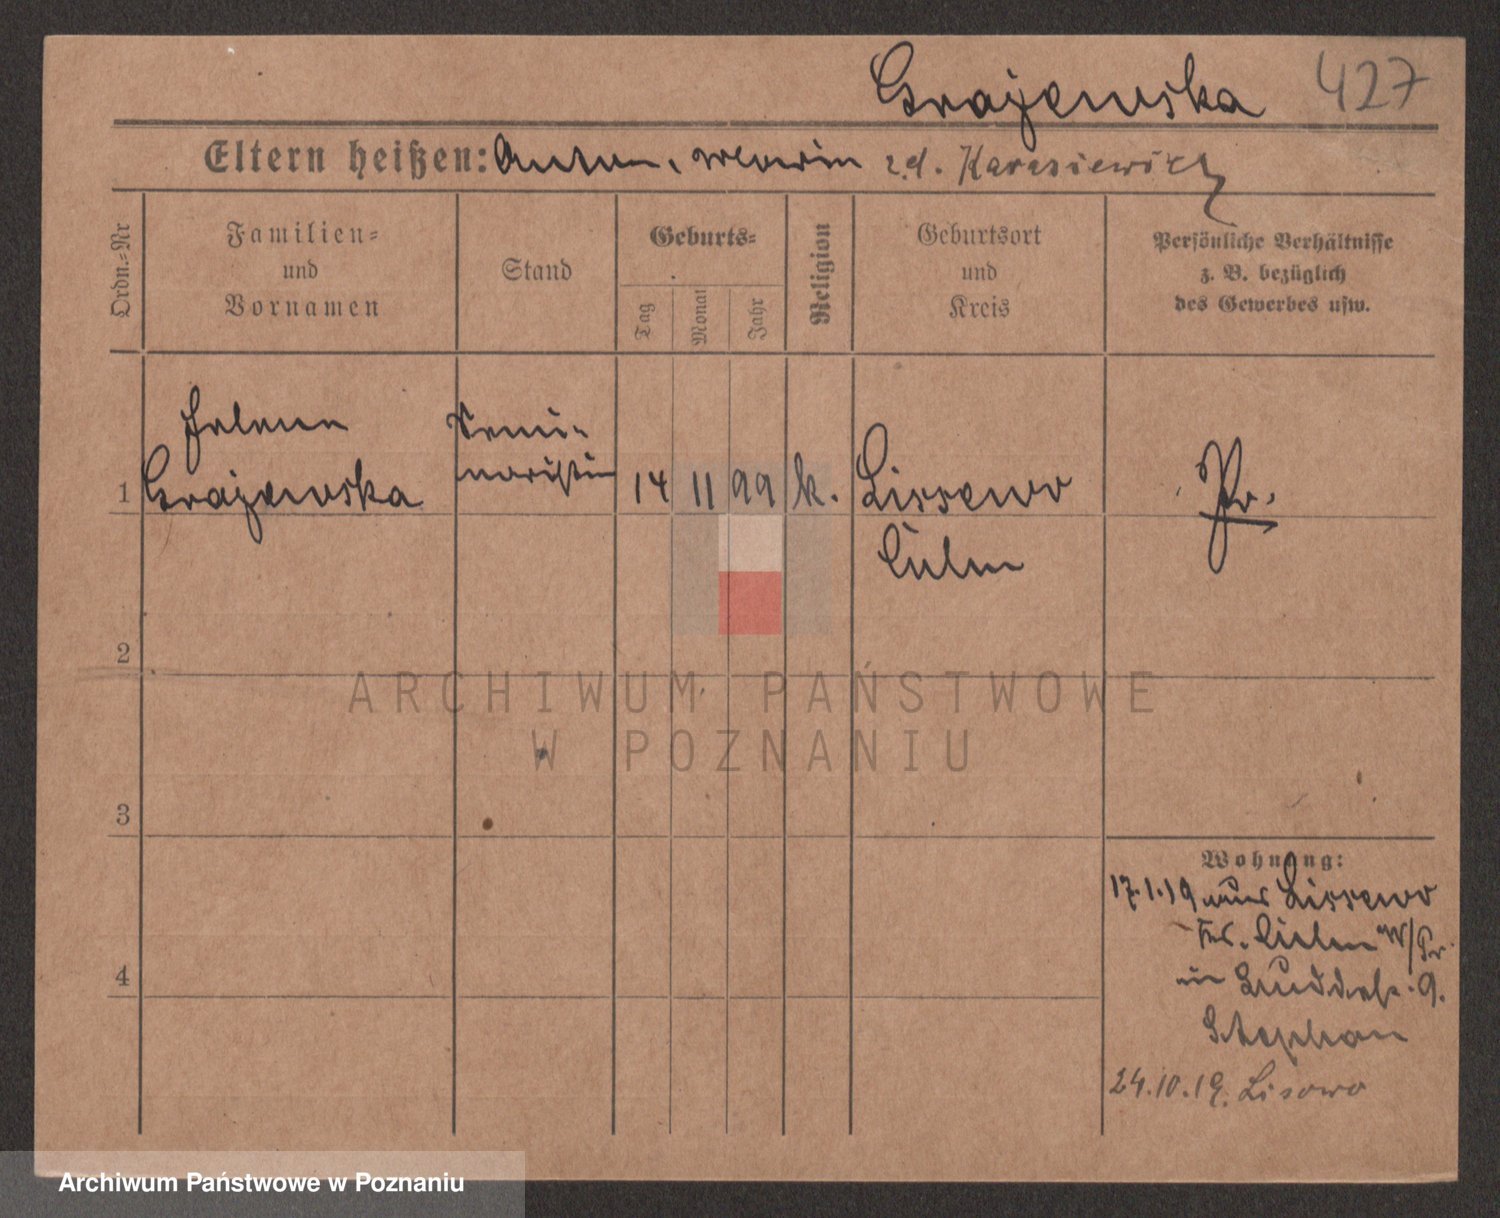 Grajewska 427
Eltern heißen: Anton, Maria z.d. Karasiewicz
Ordn.-Nr
Familien-
und
Vornamen
Stand
Geburts-
Tag
Monat
Jahr
Religion
Geburtsort
und
Kreis
Persönliche Verhältnisse
z. B. bezüglich
des Gewerbes usw.
Helene Semi-
1 Grajewska naristin 14 11 99 k. Lissewo Pr.
Culm
2
ARCHIWUM PAŃSTWOWE
W POZNANIU
3
Wohnung:
17.1.19 aus Lissewo
Krs. Culm W/Pr.
4
in 9.
Stephan
24.10.19. Lisowo
Archiwum Państwowe w Poznaniu